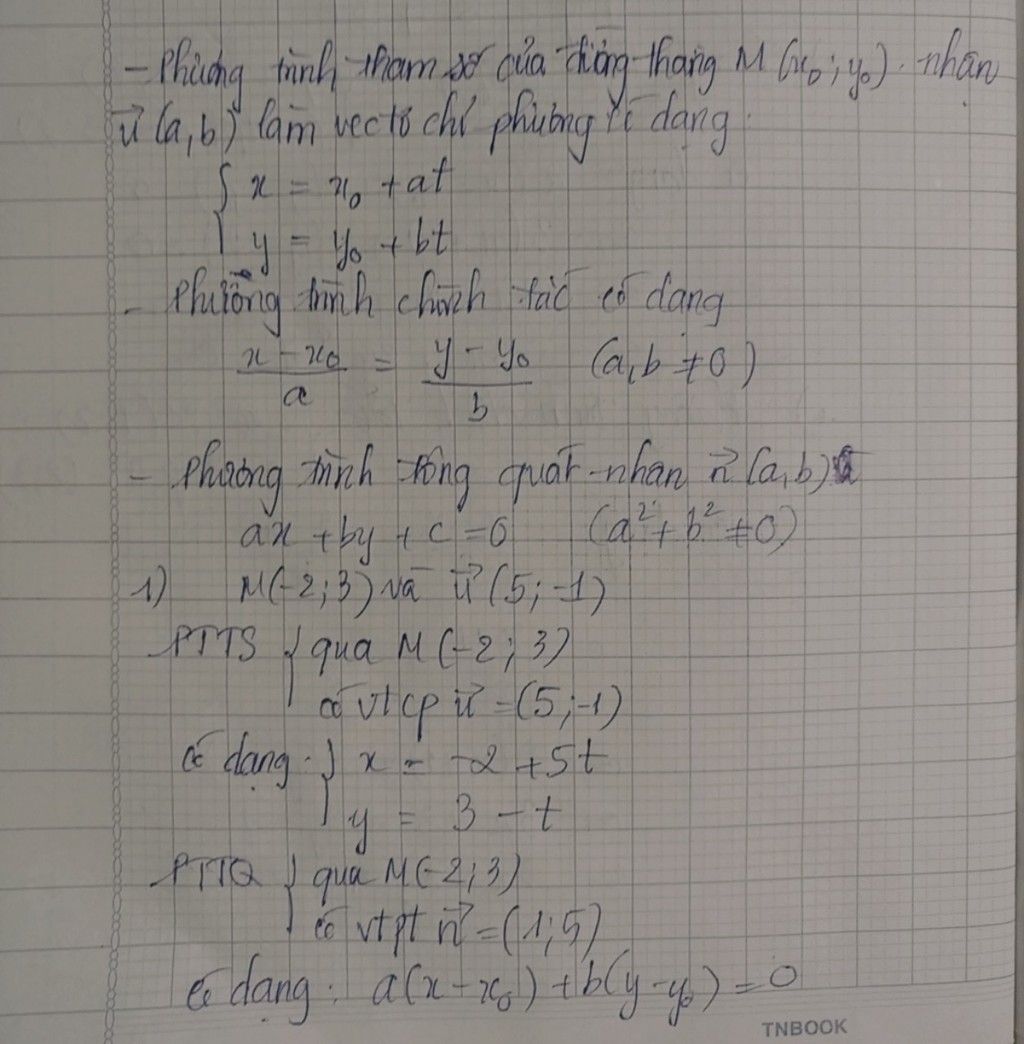 - Phương trình tham số của đường thẳng M (x₀; y₀). nhận
u⃗ (a, b) làm vectơ chỉ phương có dạng
{ x = x₀ + at
y = y₀ + bt
- Phương trình chính tắc có dạng
(x - x₀)/a = (y - y₀)/b (a, b ≠ 0)
- Phương trình tổng quát nhận n⃗ (a, b)
ax + by + c = 0 (a² + b² ≠ 0)
1) M(-2; 3) và u⃗ (5; -1)
PTTS { qua M (-2; 3)
có vtcp u⃗ = (5; -1)
Có dạng: { x = -2 + 5t
y = 3 - t
PTTQ { qua M(-2; 3)
có vtpt n⃗ = (1; 5)
Có dạng: a(x - x₀) + b(y - y₀) = 0
TNBOOK